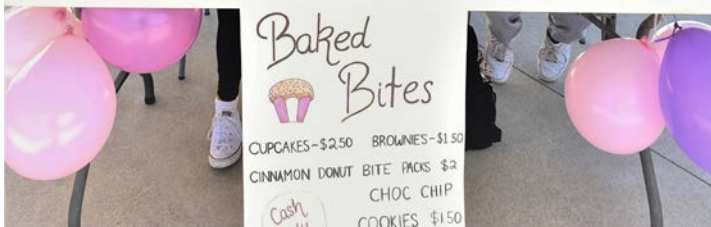 Baked
Bites
CUPCAKES~$2.50 BROWNIES~$1.50
CINNAMON DONUT BITE PACKS $2
CHOC CHIP
Cash
COOKIES $1.50